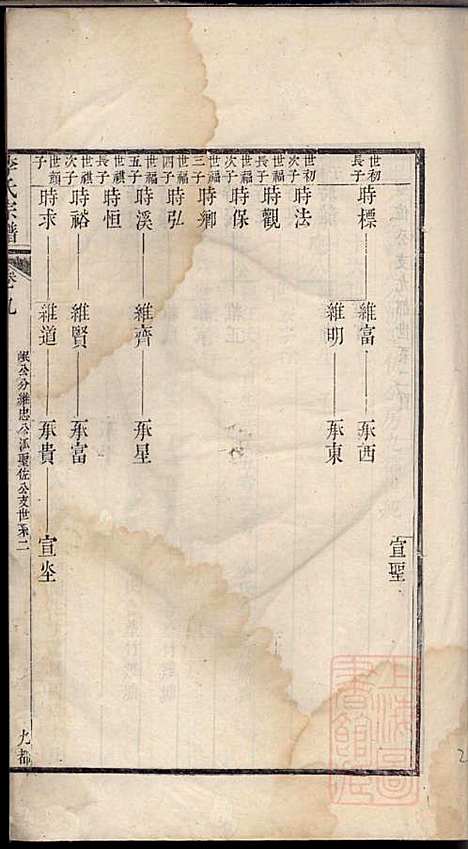 世初長子 時標 維富 承西 宣聖
維明 承東
世初次子 時法
世福長子 時觀
世福次子 時保
世福三子 時鄉
世福四子 時弘
世福五子 時溪 維齊 承星
世祺長子 時恒
世祺次子 時裕 維賢 承富
世顏子 時求 維道 承貴 宣坐
李氏宗譜 卷九 公分維忠公派聖佐公支世系二 九都
上海圖書館藏
2